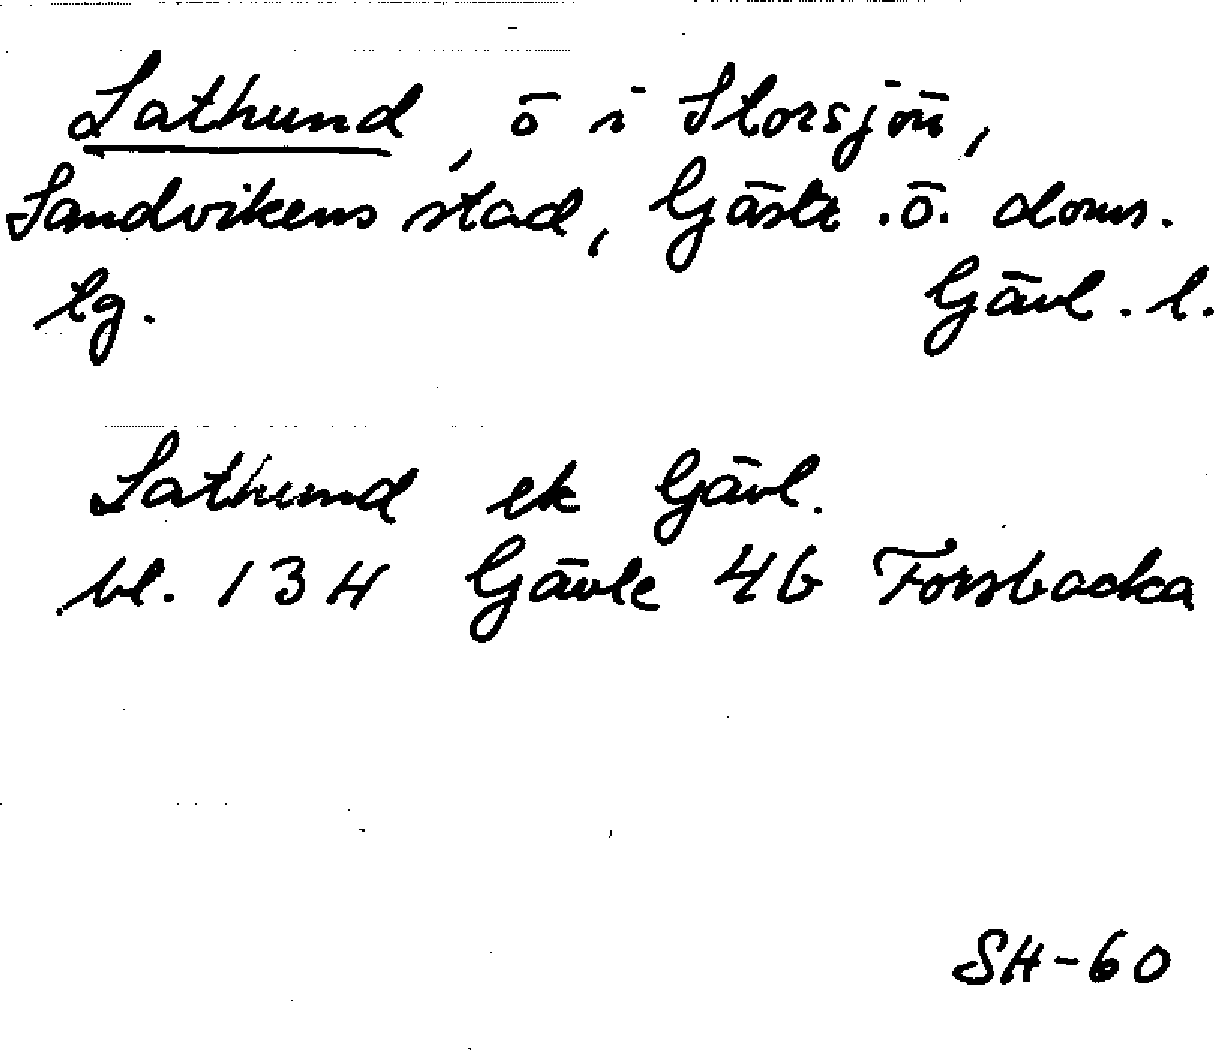 Lathund, ö i Storsjön,
Sandvikens stad, Gästr. ö. doms.
tg. Gävl. l.
Lathund ek Gävl.
bl. 134 Gävle 4b Forsbacka
SH-60